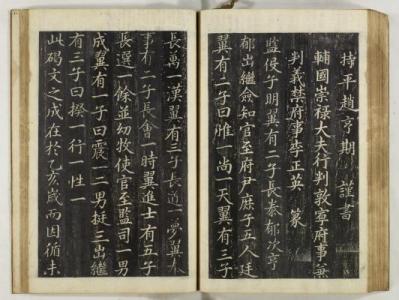 持平趙亨期　謹書
輔國崇祿大夫行判敦寧府事兼
判義禁府事李正英　篆
監役子明翼有二子長泰郁次亨
郁出繼僉知官至府尹庶子五人廷
翼有二子曰唯一尚一天翼有三子
長萬一漢翼有三子長道一夢翼
事有二子長會一時翼進士有五子
長選一餘並幼牧使官至監司一男
成翼有一子曰震一二男挺三出繼
有三子曰揆一行一性一
此碣文之成在於乙亥歲而因循未